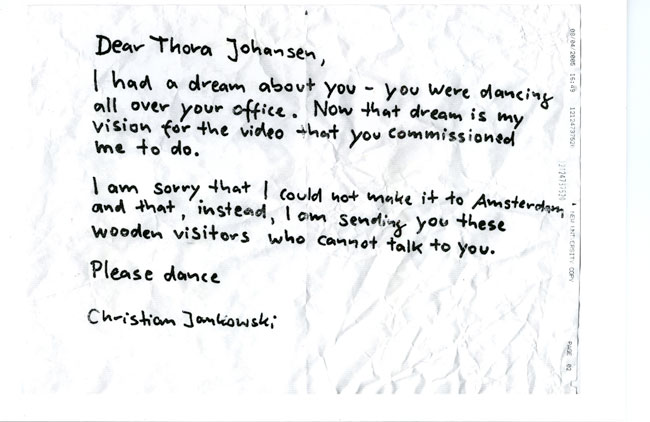 Dear Thora Johansen,
I had a dream about you – you were dancing
all over your office. Now that dream is my
vision for the video that you commissioned
me to do.
I am sorry that I could not make it to Amsterdam,
and that, instead, I am sending you these
wooden visitors who cannot talk to you.
Please dance
Christian Jankowski
08/04/2005 16:49
NEW INTERSITY COPY
PAGE 02